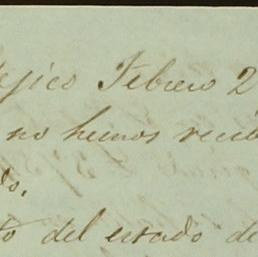 Méjico Febrero 2
no hemos reci
do.
to del estado de